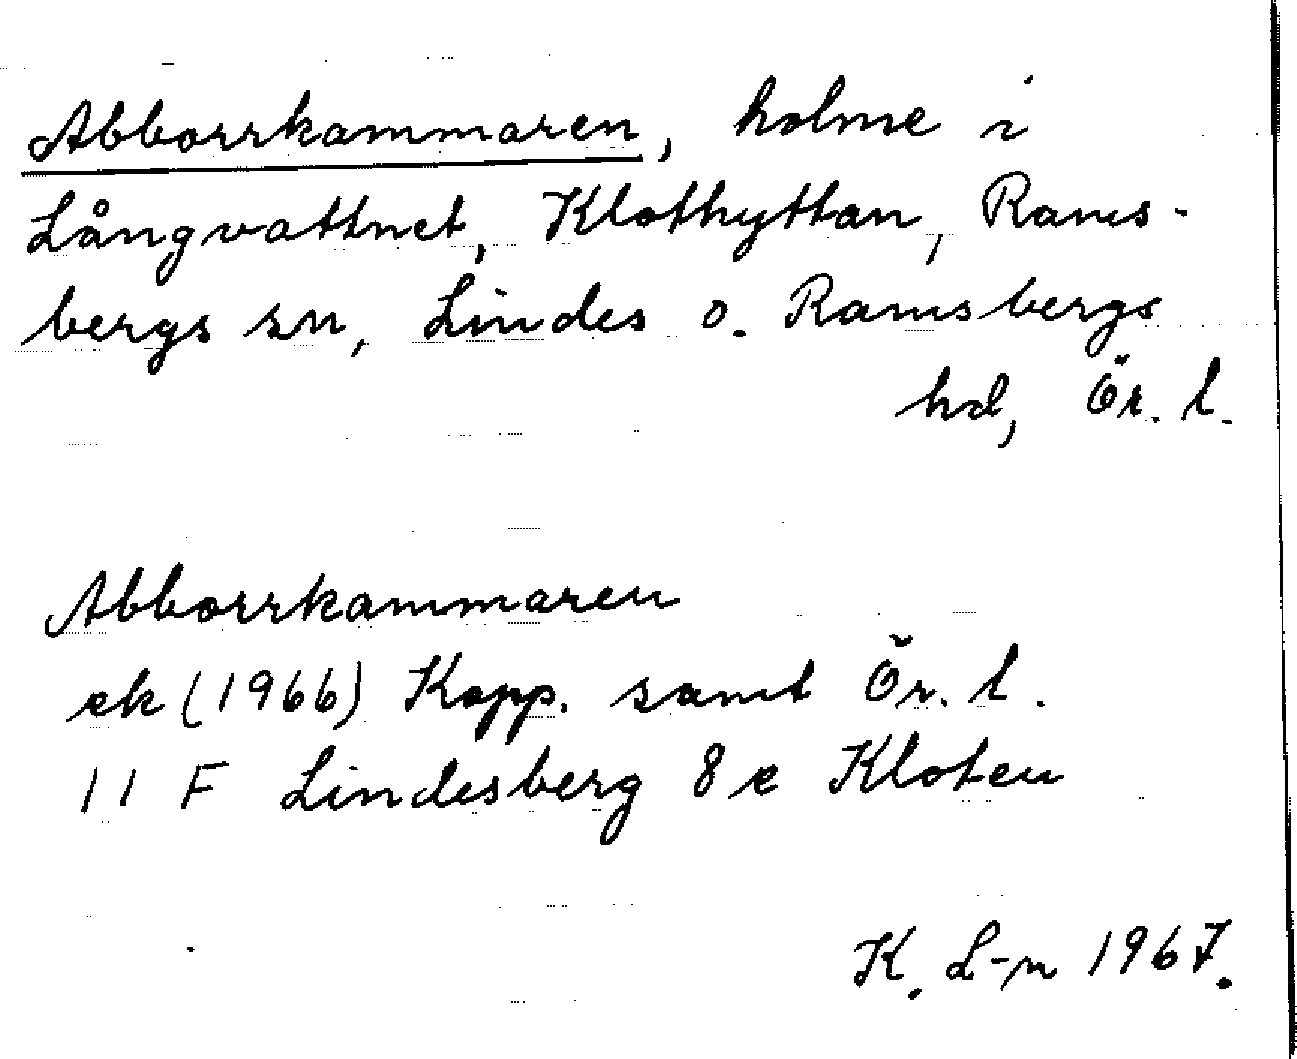 Abborrkammaren, holme i
Långvattnet, Klothyttan, Rams-
bergs sn, Lindes o. Ramsbergs
hd, Ör. l.
Abborrkammaren
ek (1966) Kopp. samt Ör. l.
11 F Lindesberg 8 e Kloten
K. L-n 1967.